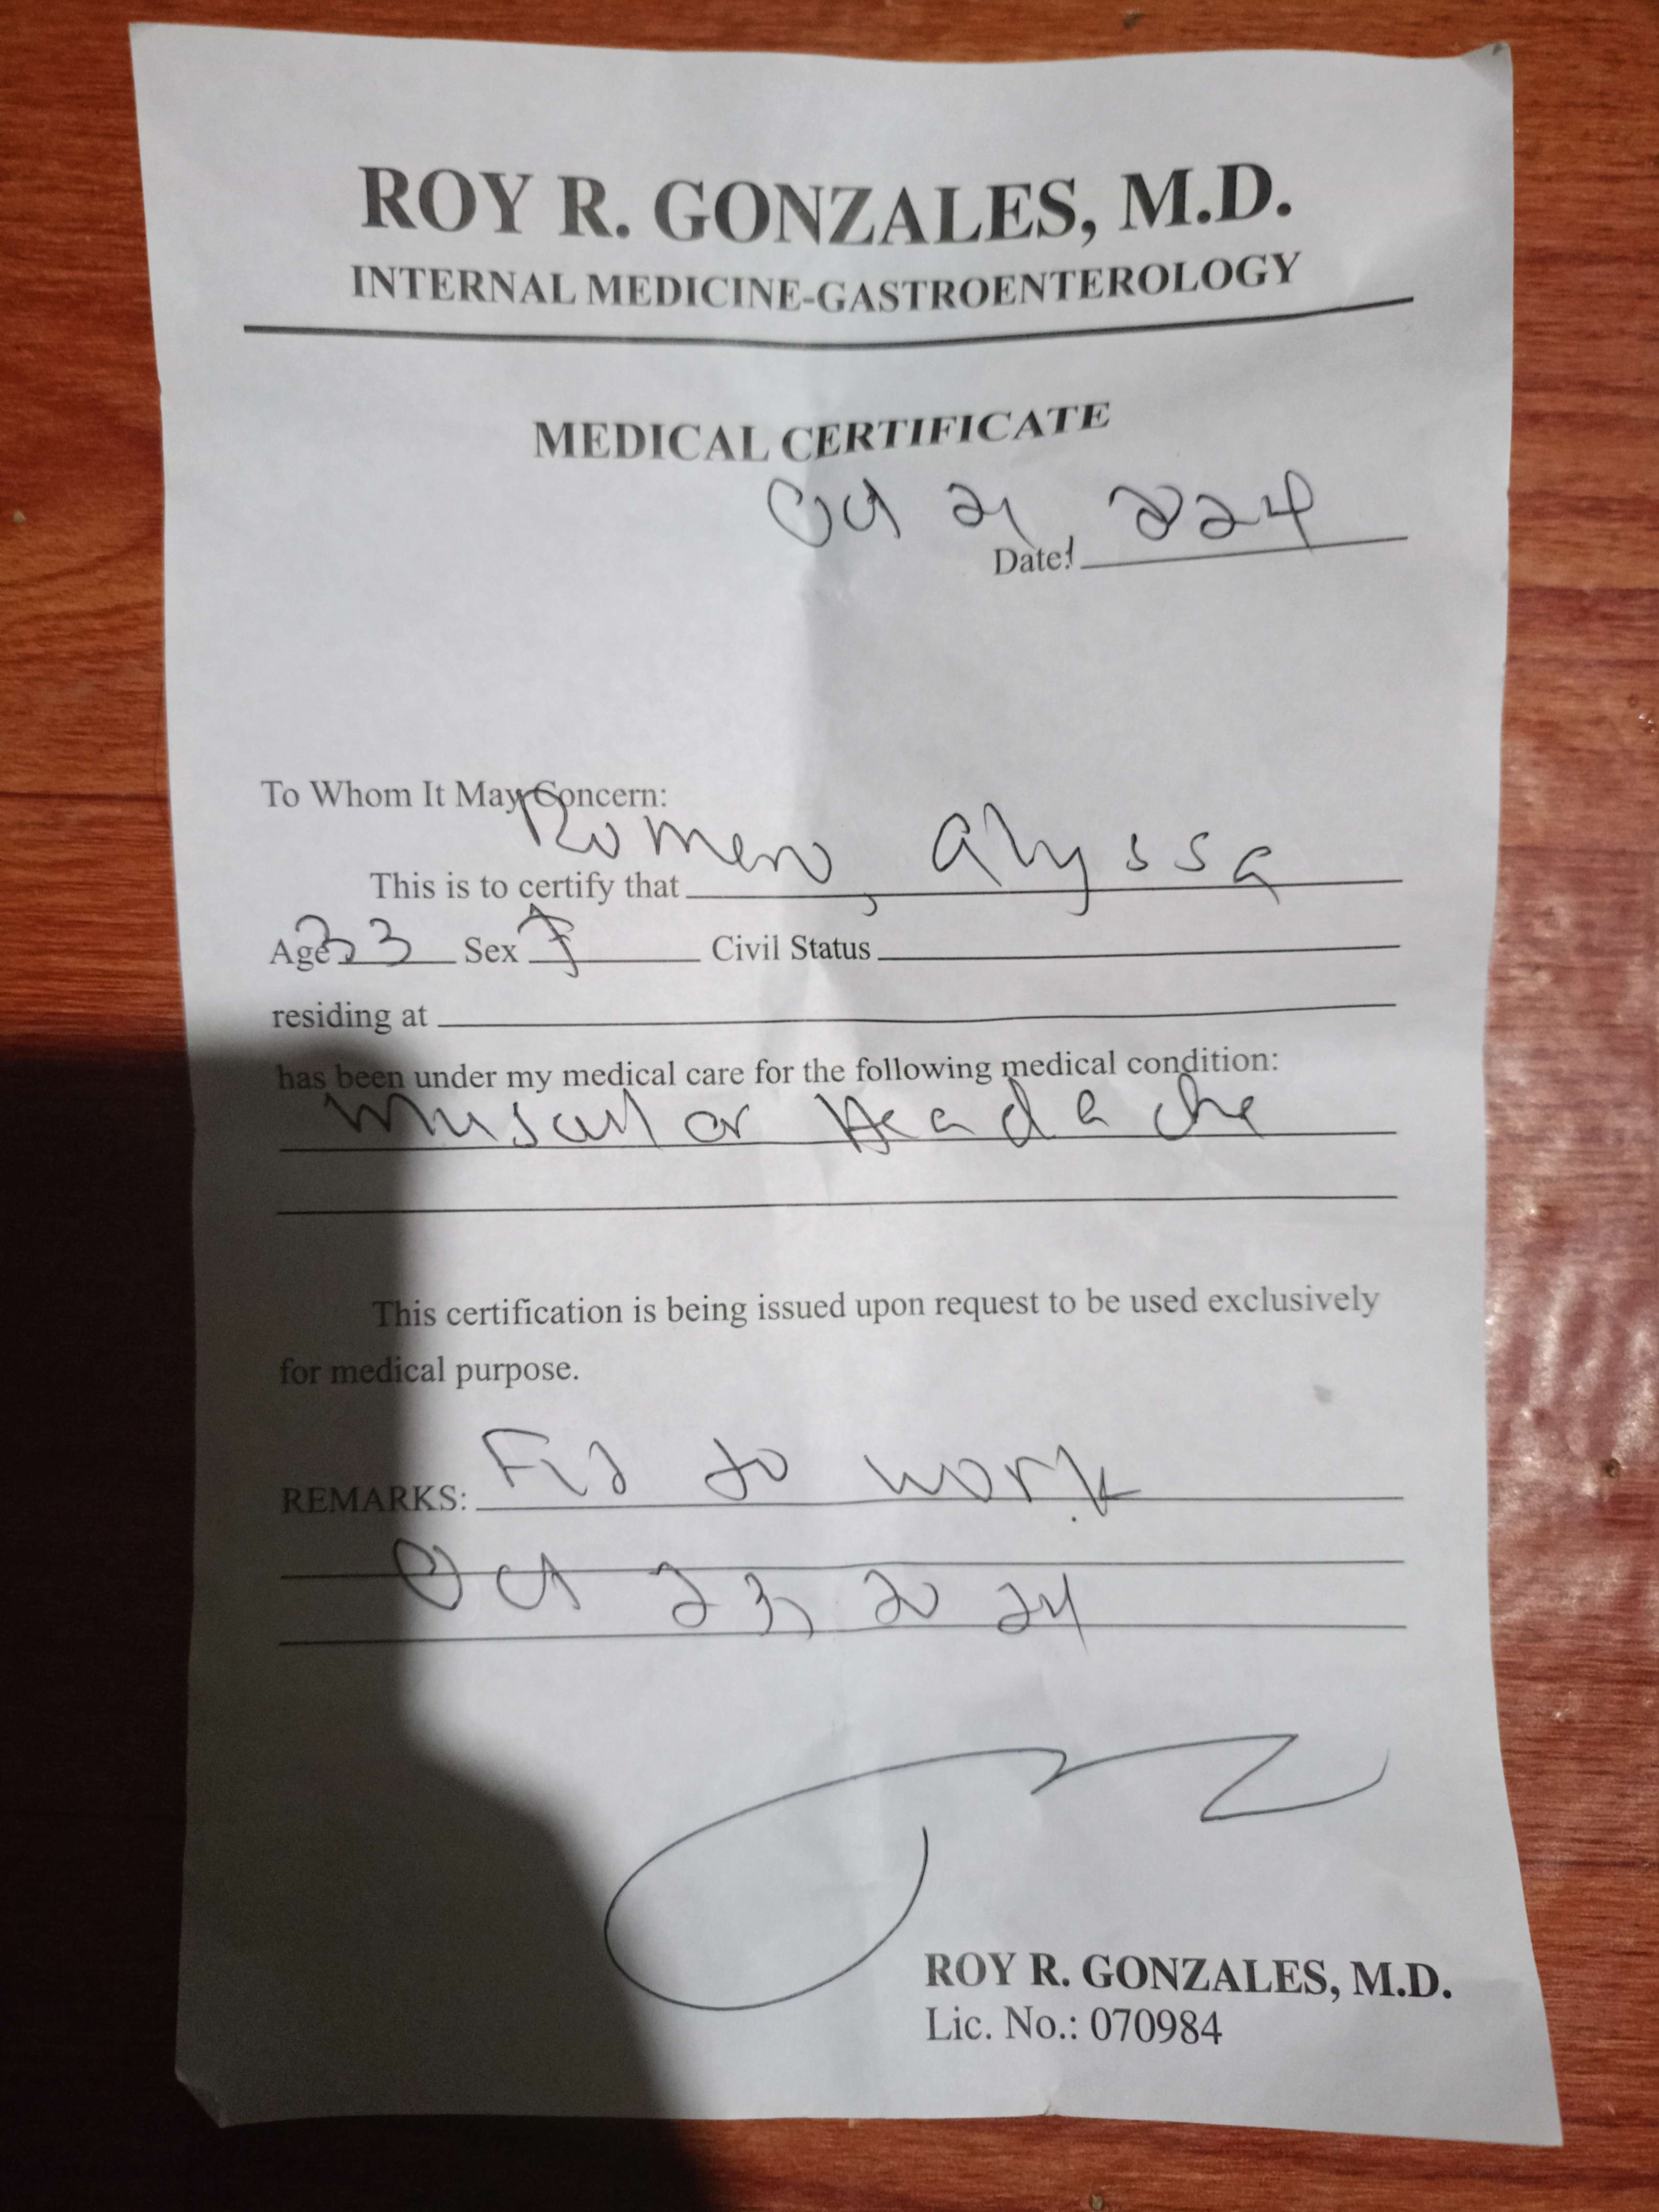 ROY R. GONZALES, M.D.
INTERNAL MEDICINE-GASTROENTEROLOGY
MEDICAL CERTIFICATE
Oct 21, 2024
Date:
To Whom It May Concern:
This is to certify that Romero, Alyssa
Age 33 Sex F Civil Status
residing at
has been under my medical care for the following medical condition:
Muscular Headache
This certification is being issued upon request to be used exclusively
for medical purpose.
REMARKS: Fit to work
Oct 23, 2024
ROY R. GONZALES, M.D.
Lic. No.: 070984